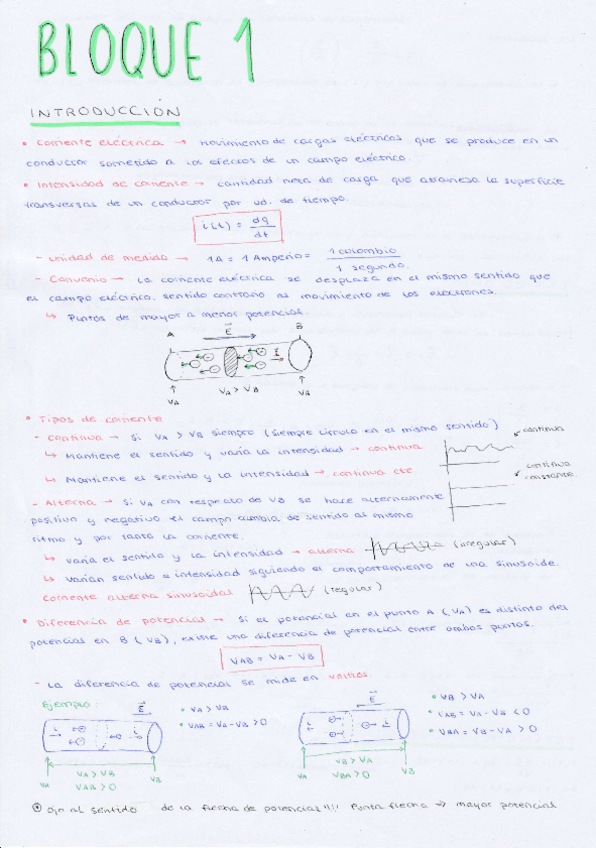 BLOQUE 1
INTRODUCCIÓN
• Corriente eléctrica → movimiento de cargas eléctricas que se produce en un
conductor sometido a los efectos de un campo eléctrico.
• Intensidad de corriente → cantidad neta de carga que atraviesa la superficie
transversal de un conductor por ud. de tiempo.
i(t) = dq/dt
- Unidad de medida → 1A = 1 Amperio = 1 culombio / 1 segundo.
- Convenio → La corriente eléctrica se desplaza en el mismo sentido que
el campo eléctrico, sentido contrario al movimiento de los electrones.
↳ Puntos de mayor a menor potencial.
A E B
VA VA > VB VB
• Tipos de corriente
- Continua → Si VA > VB siempre (siempre circula en el mismo sentido)
continua
↳ Mantiene el sentido y varía la intensidad → continua
↳ Mantiene el sentido y la intensidad → continua cte
continua
constante.
- Alterna → Si VA con respecto de VB se hace alternamente
positivo y negativo el campo cambia de sentido al mismo
ritmo y por tanto la corriente.
↳ varía el sentido y la intensidad → alterna (irregular)
↳ Varían sentido e intensidad siguiendo el comportamiento de una sinusoide.
Corriente alterna sinusoidal (regular)
• Diferencia de potencial → Si el potencial en el punto A (VA) es distinto del
potencial en B (VB), existe una diferencia de potencial entre ambos puntos.
VAB = VA - VB
- La diferencia de potencial se mide en voltios.
Ejemplo: E
• VA > VB
• VAB = VA - VB > 0
VA VB
VA > VB
VAB > 0
E
• VB > VA
• VAB = VA - VB < 0
• VBA = VB - VA > 0
VA VB
VB > VA
VBA > 0
Ojo al sentido de la flecha de potencial!!!! Punta flecha → mayor potencial